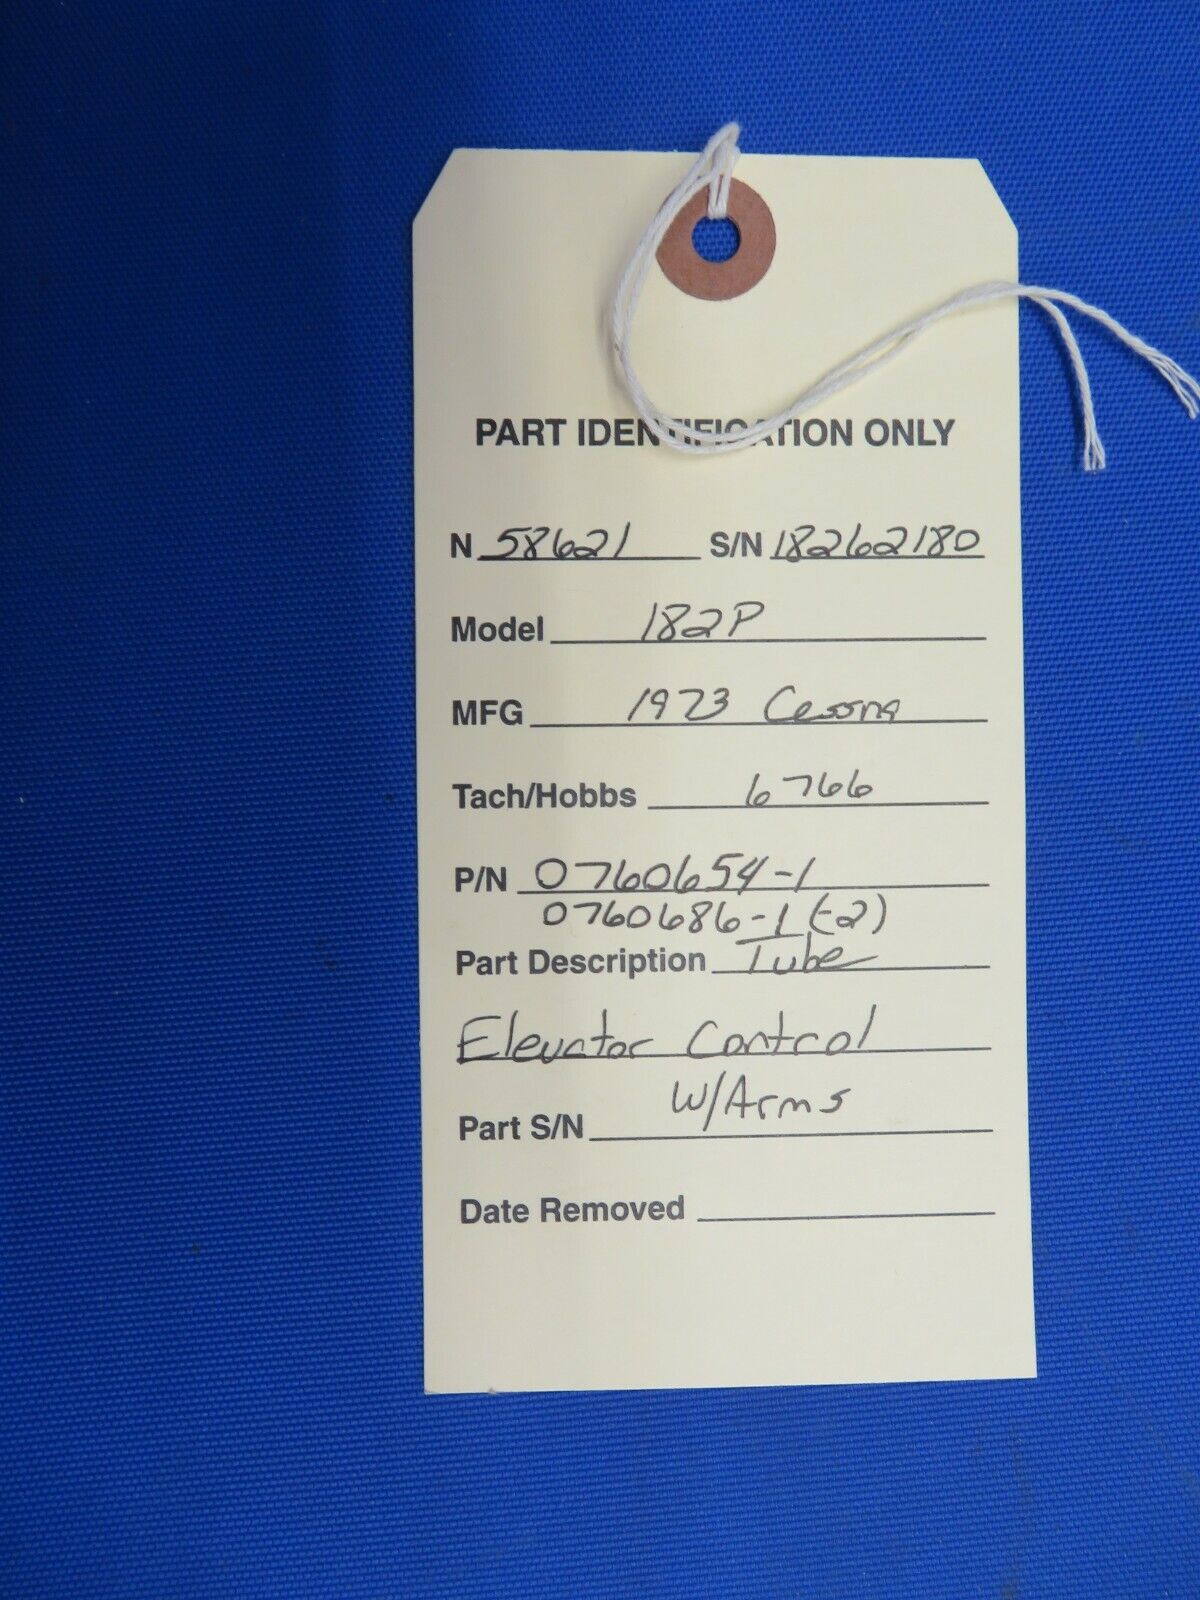 PART IDENTIFICATION ONLY
N 58621 S/N 18262180
Model 182P
MFG 1973 Cessna
Tach/Hobbs 6766
P/N 0760654-1
0760686-1 (-2)
Part Description Tube
Elevator Control
W/Arms
Part S/N
Date Removed